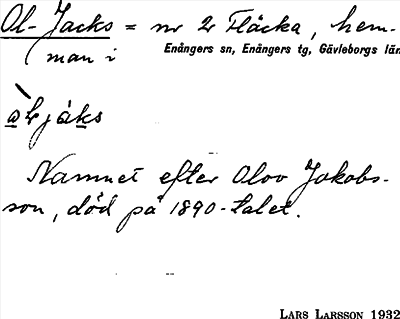 Ol-Jacks = nr 2 Fläcka, hem-
(man i Enångers sn, Enångers tg, Gävleborgs län
Namnet efter Olov Jakobs-
son, död på 1890-talet.
LARS LARSSON 1932